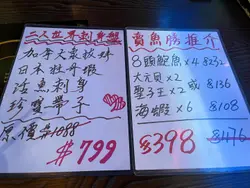 二人世界刺身盤
加拿大象拔蚌
日本牡丹蝦
油甘魚刺身
珍寶帶子
原價$1088
$799
賣魚勝推介
8頭鮑魚×4 $232
大元貝×2
聖子王×2 或 $136
海蝦×6 $108
$398 $476